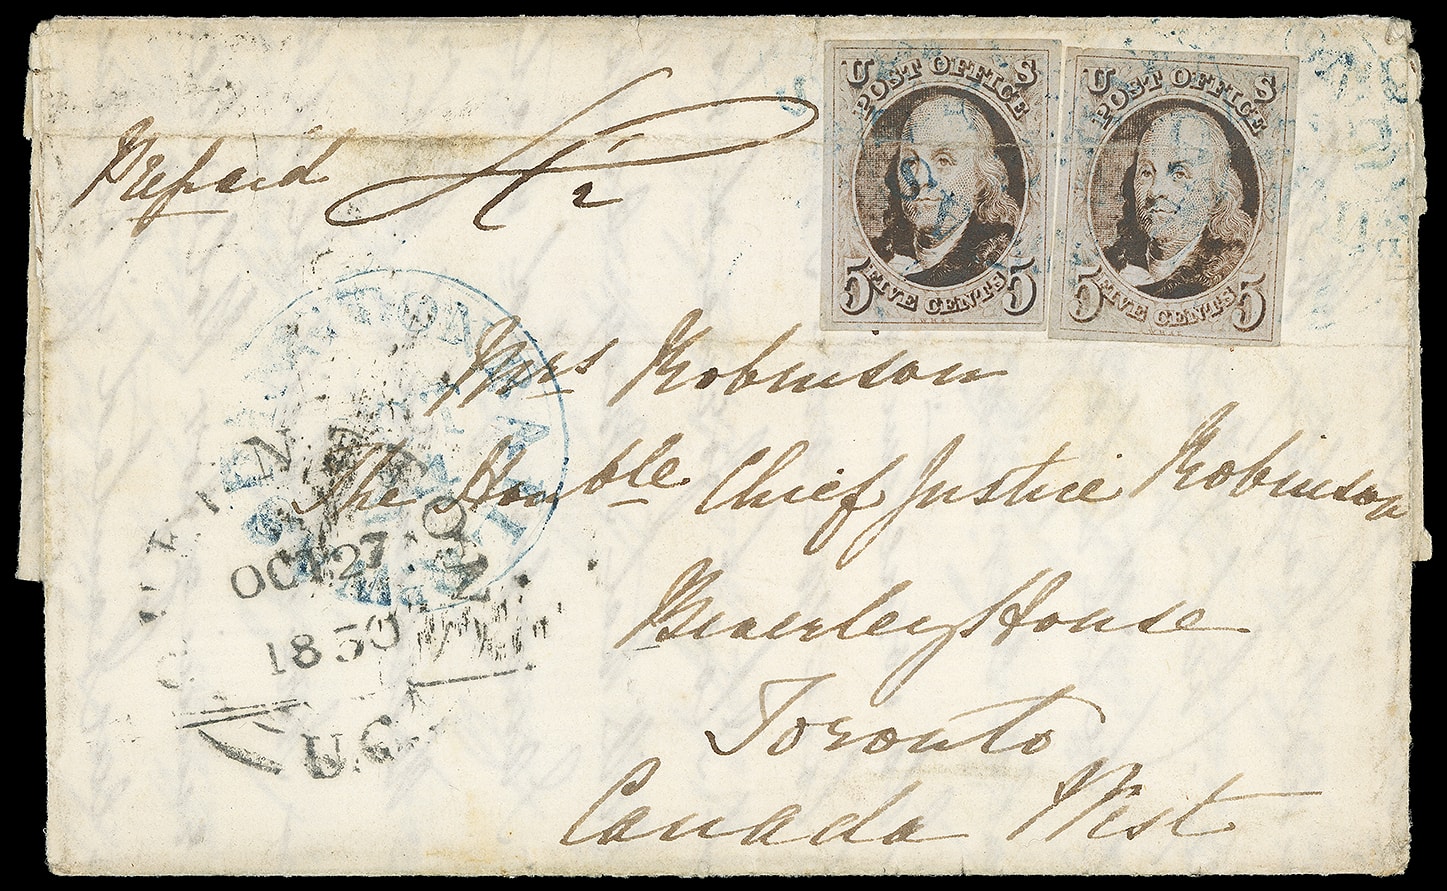 Prepaid
U S
POST OFFICE
5 FIVE CENTS 5
U S
POST OFFICE
5 FIVE CENTS 5
RAIL
Mrs Robinson
The Honble Chief Justice Robinson
Beverley House
Toronto
Canada West
QUEENSTON
OCT 27
1850
U.C.